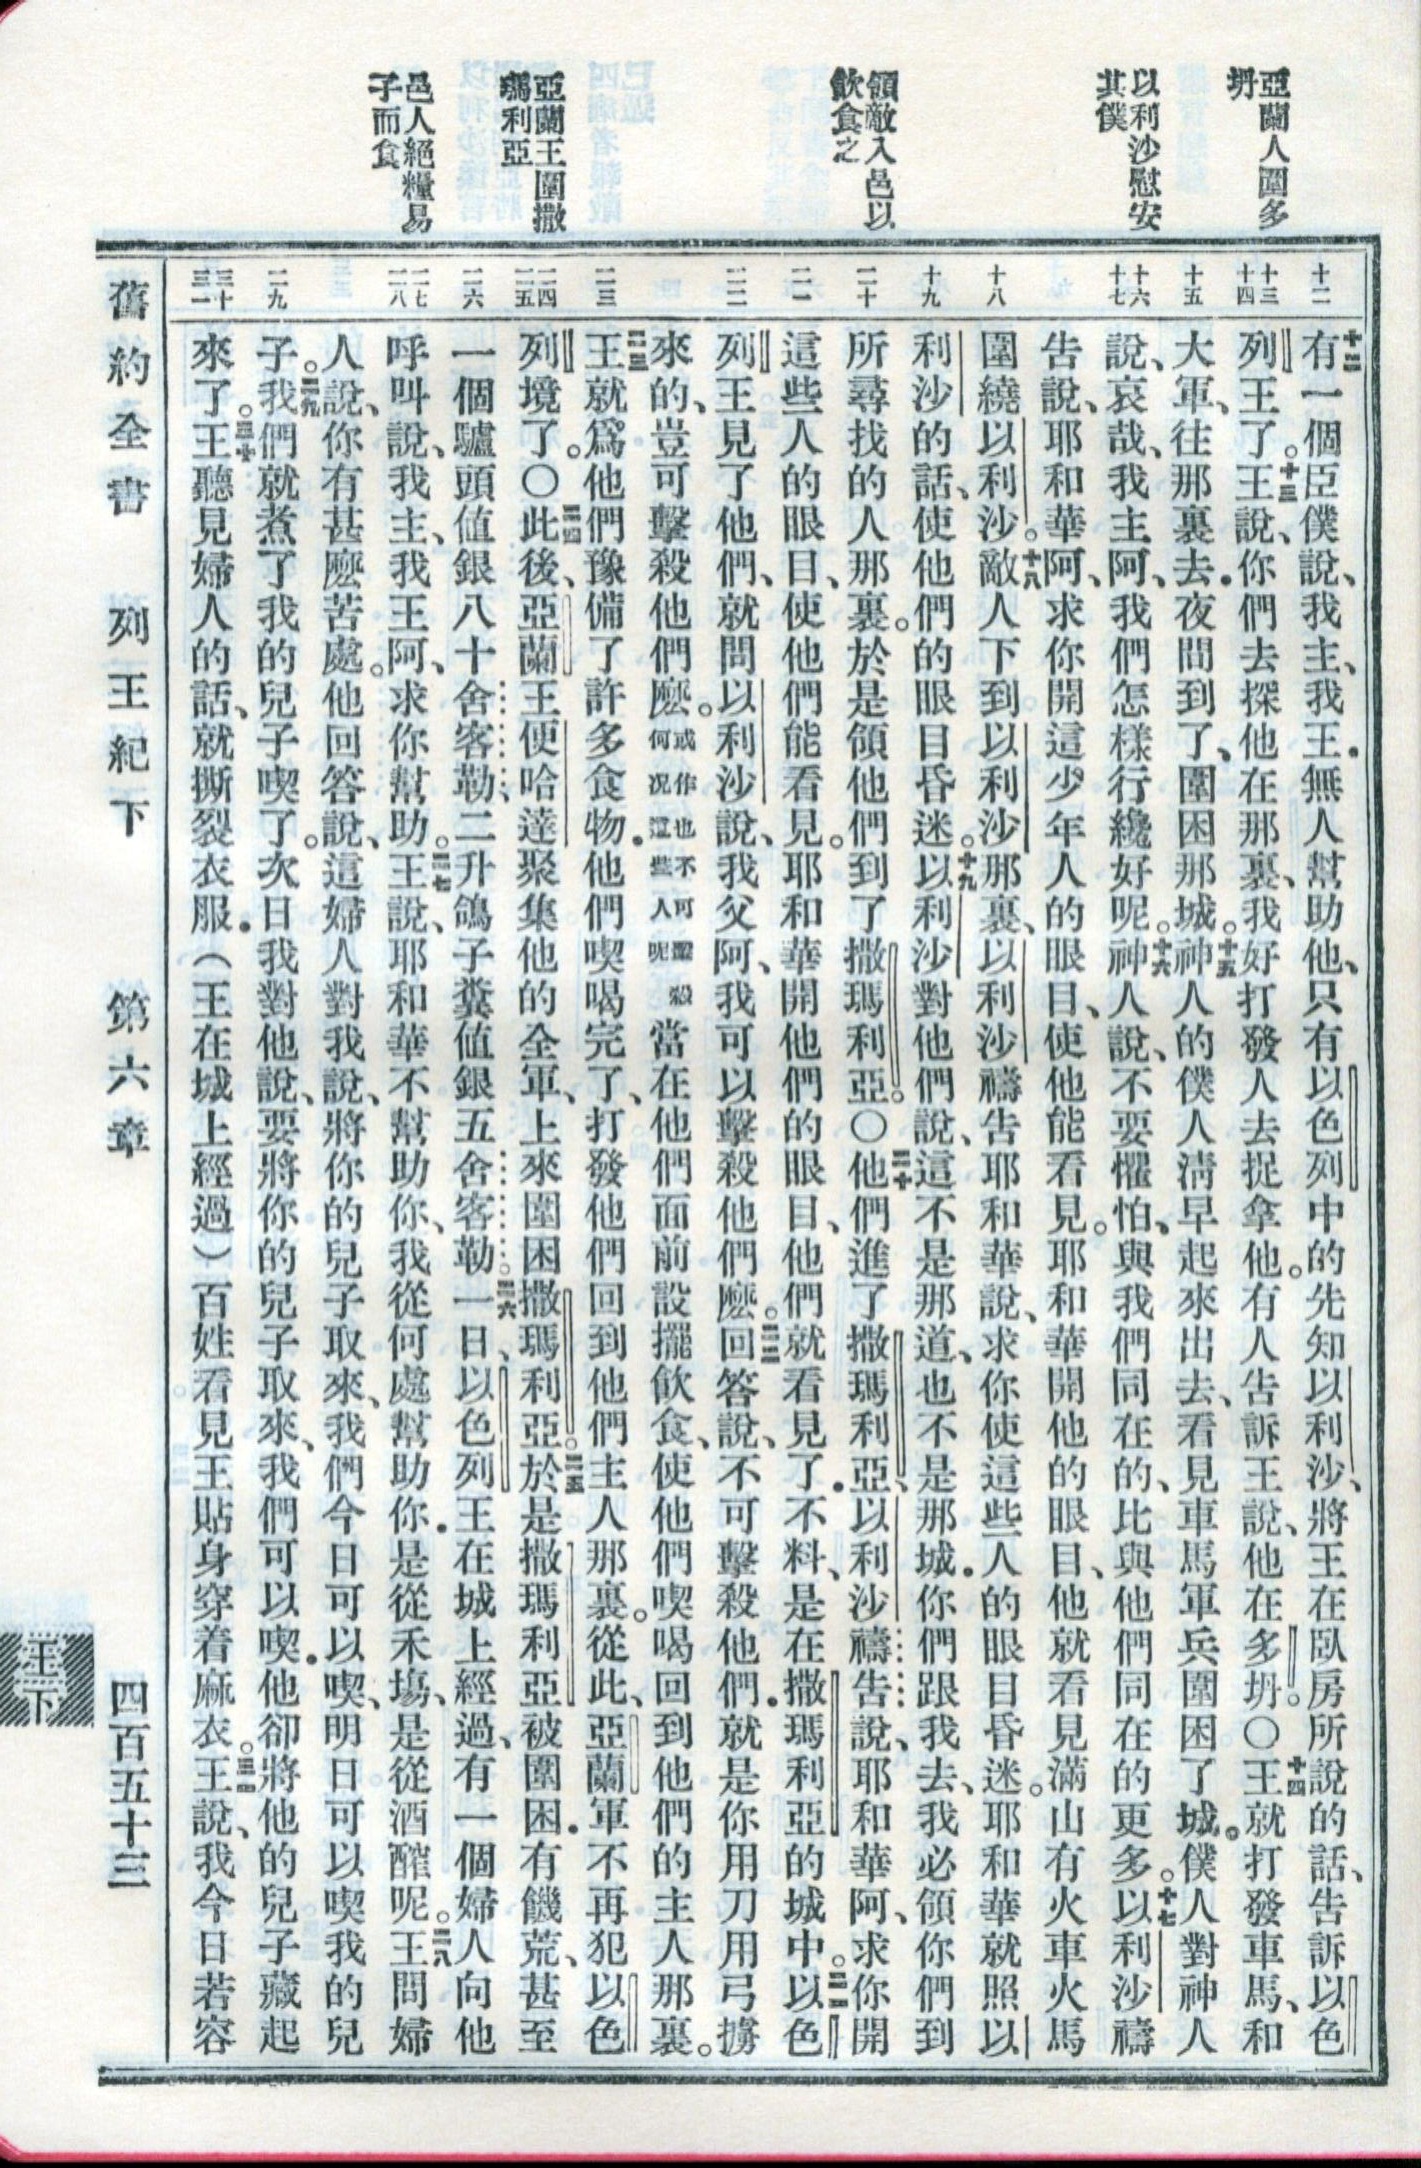 亞蘭人圍多
坍
以利沙慰安
其僕
領敵入邑以
飲食之
亞蘭王圍撒
瑪利亞
邑人絕糧易
子而食
十二
十三
十四
十五
十六
十七
十八
十九
二十
二一
二二
二三
二四
二五
二六
二七
二八
二九
三十
三一
十二有一個臣僕說、我主、我王．無人幫助他、只有以色列中的先知以利沙、將王在臥房所說的話、告訴以色
列王了。十三王說、你們去探他在那裏、我好打發人去捉拿他。有人告訴王說、他在多坍。〇十四王就打發車馬、和
大軍、往那裏去．夜間到了、圍困那城。十五神人的僕人淸早起來出去、看見車馬軍兵圍困了城。僕人對神人
說、哀哉、我主阿、我們怎樣行纔好呢。十六神人說、不要懼怕、與我們同在的、比與他們同在的更多。十七以利沙禱
告說、耶和華阿、求你開這少年人的眼目、使他能看見。耶和華開他的眼目、他就看見滿山有火車火馬
圍繞以利沙。十八敵人下到以利沙那裏、以利沙禱告耶和華說、求你使這些人的眼目昏迷。耶和華就照以
利沙的話、使他們的眼目昏迷。十九以利沙對他們說、這不是那道、也不是那城．你們跟我去、我必領你們到
所尋找的人那裏。於是領他們到了撒瑪利亞。〇二十他們進了撒瑪利亞、以利沙禱告說、耶和華阿、求你開
這些人的眼目、使他們能看見。耶和華開他們的眼目、他們就看見了．不料、是在撒瑪利亞的城中。二一以色
列王見了他們、就問以利沙說、我父阿、我可以擊殺他們麼。二二回答說、不可擊殺他們．就是你用刀用弓擄
來的、豈可擊殺他們麼。或作也不可擊殺何況這些人呢當在他們面前設擺飲食、使他們喫喝回到他們的主人那裏。
二三王就爲他們豫備了許多食物．他們喫喝完了、打發他們回到他們主人那裏。從此、亞蘭軍不再犯以色
列境了。〇二四此後、亞蘭王便哈達聚集他的全軍、上來圍困撒瑪利亞。二五於是撒瑪利亞被圍困．有饑荒、甚至
一個驢頭值銀八十舍客勒、二升鴿子糞值銀五舍客勒。二六一日、以色列王在城上經過、有一個婦人向他
呼叫說、我主、我王阿、求你幫助。二七王說、耶和華不幫助你、我從何處幫助你．是從禾場、是從酒醡呢。二八王問婦
人說、你有甚麼苦處。他回答說、這婦人對我說、將你的兒子取來、我們今日可以喫、明日可以喫我的兒
子。二九我們就煮了我的兒子喫了。次日我對他說、要將你的兒子取來、我們可以喫．他卻將他的兒子藏起
來了。三十王聽見婦人的話、就撕裂衣服．（王在城上經過）百姓看見王貼身穿着麻衣。三一王說、我今日若容
舊約全書　列王紀下　第六章　四百五十三
王下